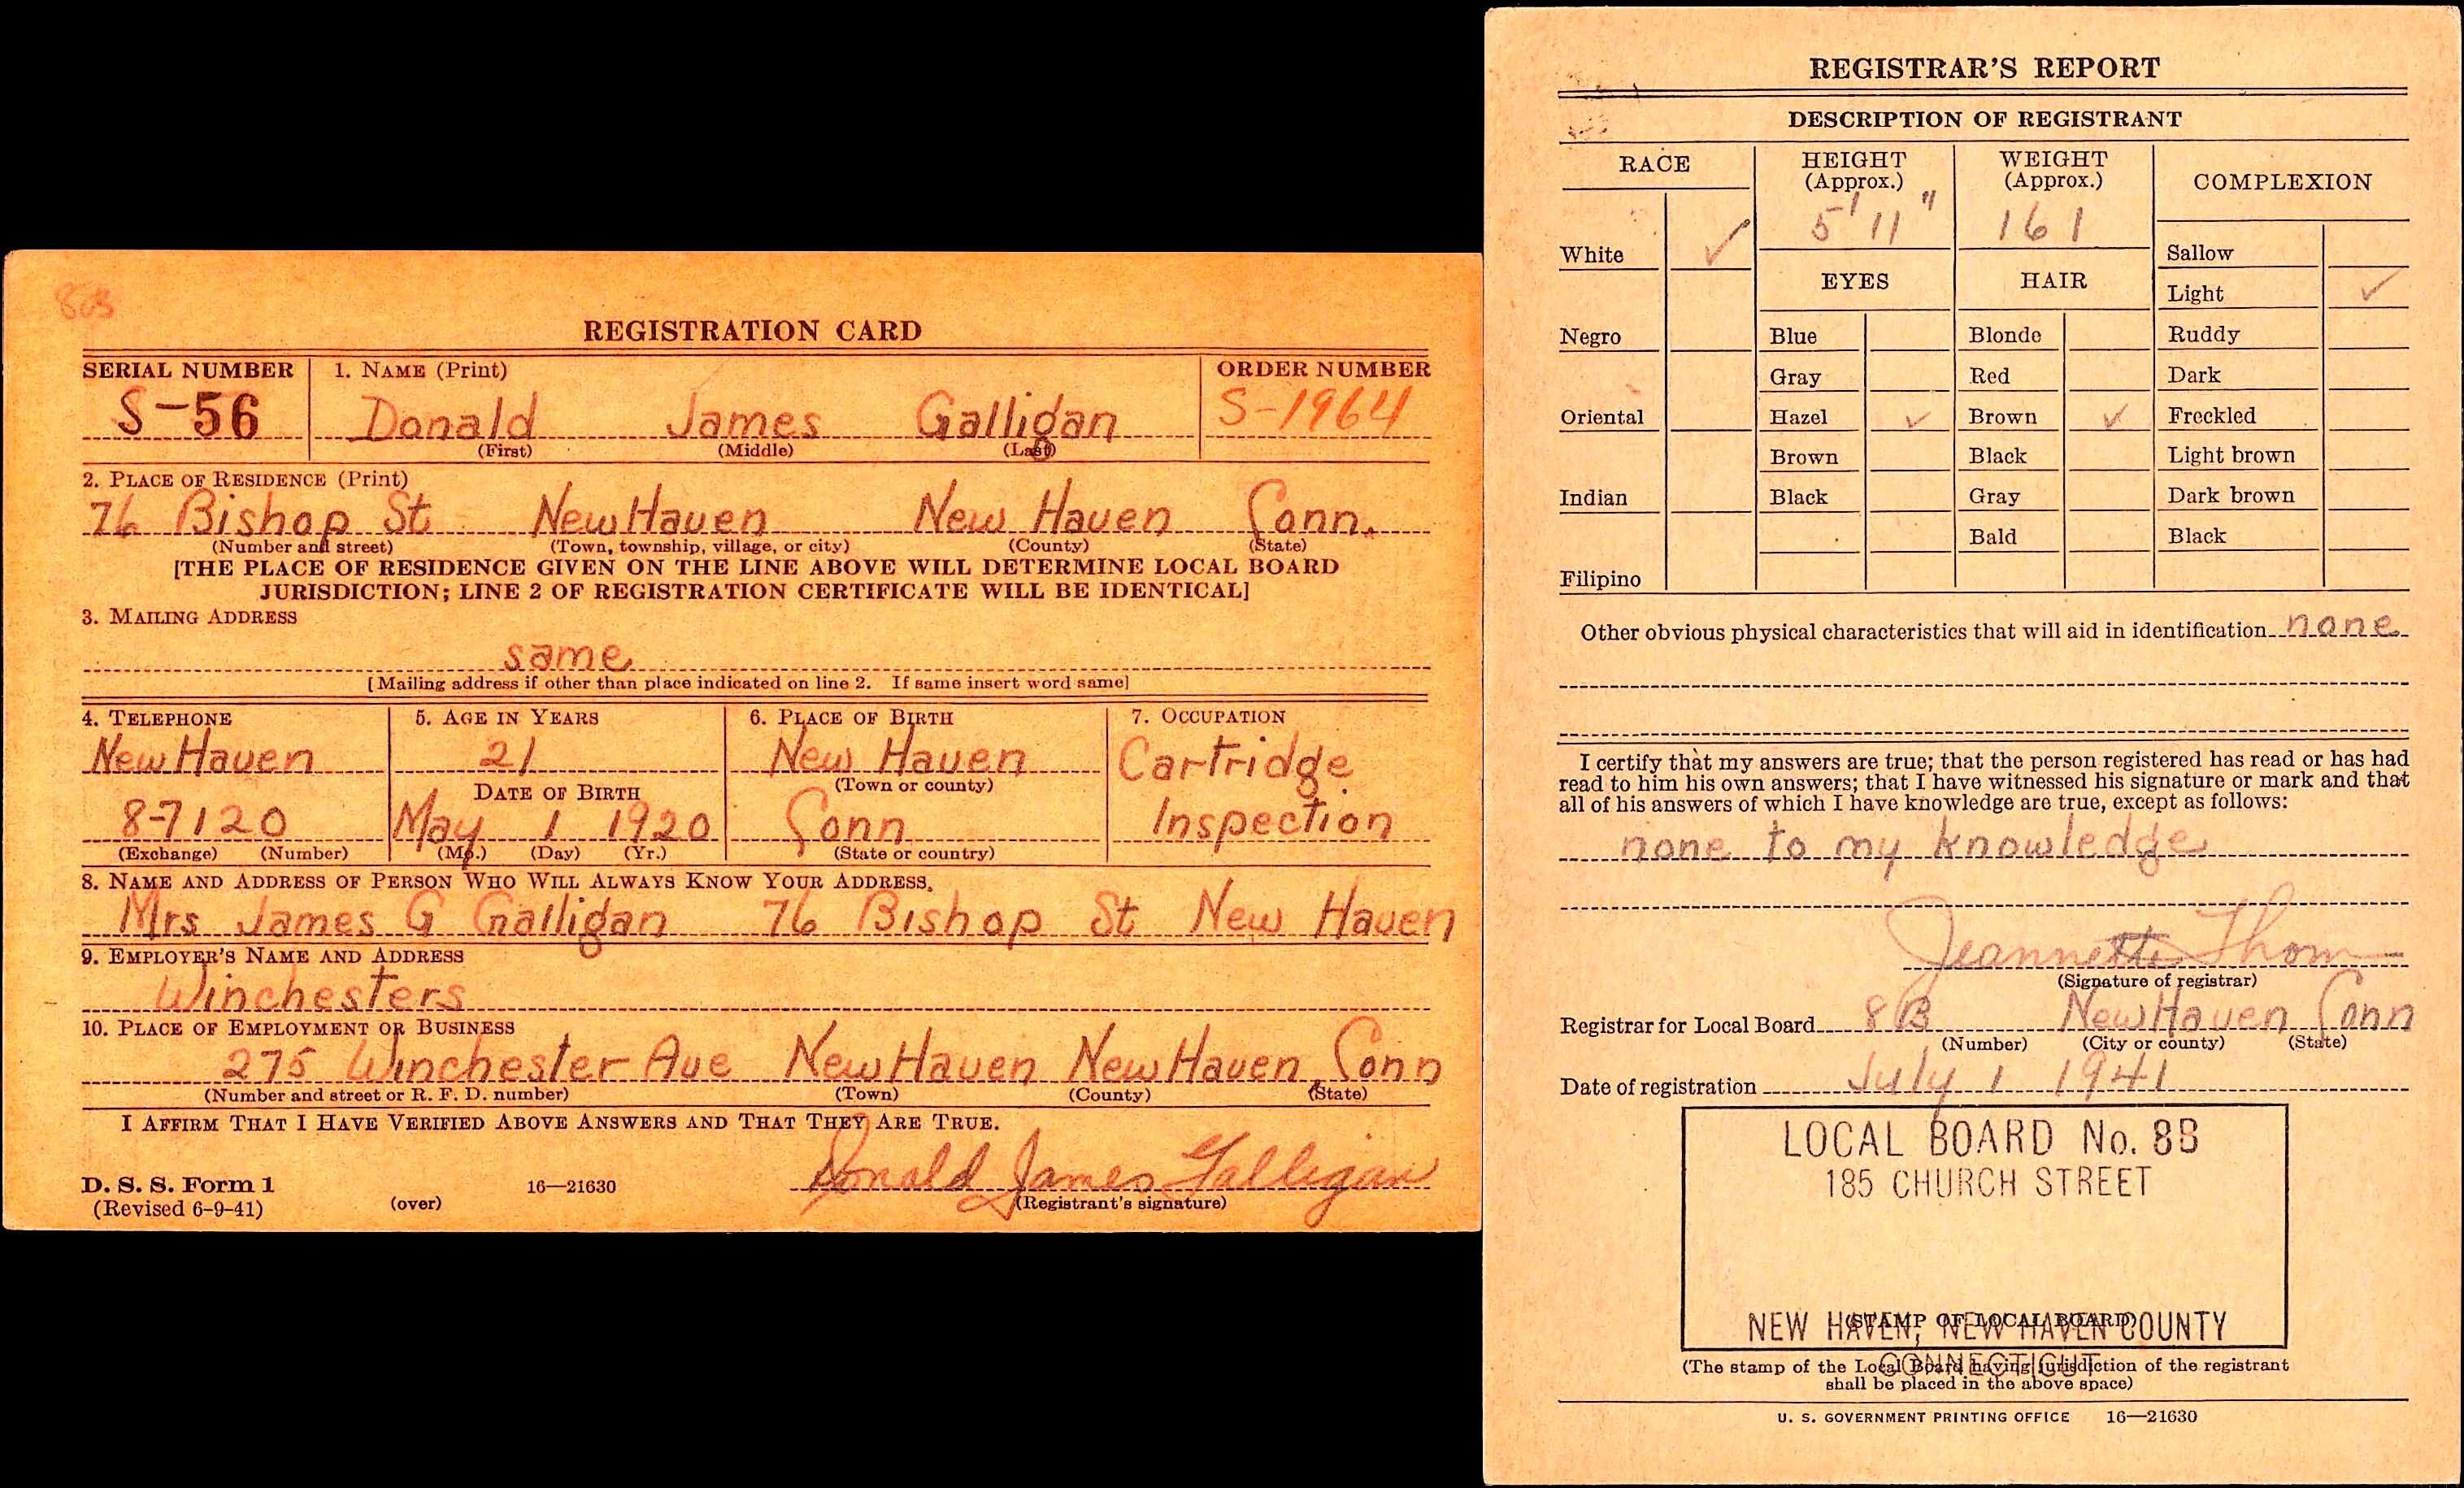 803
REGISTRATION CARD
SERIAL NUMBER 1. NAME (Print) ORDER NUMBER
S-56 Donald James Galligan S-1964
(First) (Middle) (Last)
2. PLACE OF RESIDENCE (Print)
76 Bishop St New Haven New Haven Conn.
(Number and street) (Town, township, village, or city) (County) (State)
[THE PLACE OF RESIDENCE GIVEN ON THE LINE ABOVE WILL DETERMINE LOCAL BOARD
JURISDICTION; LINE 2 OF REGISTRATION CERTIFICATE WILL BE IDENTICAL]
3. MAILING ADDRESS
same
[Mailing address if other than place indicated on line 2. If same insert word same]
4. TELEPHONE 5. AGE IN YEARS 6. PLACE OF BIRTH 7. OCCUPATION
New Haven 21 New Haven Cartridge
DATE OF BIRTH (Town or county)
8-7120 May 1 1920 Conn Inspection
(Exchange) (Number) (Mo.) (Day) (Yr.) (State or country)
8. NAME AND ADDRESS OF PERSON WHO WILL ALWAYS KNOW YOUR ADDRESS.
Mrs James G Galligan 76 Bishop St New Haven
9. EMPLOYER'S NAME AND ADDRESS
Winchesters
10. PLACE OF EMPLOYMENT OR BUSINESS
275 Winchester Ave New Haven New Haven Conn
(Number and street or R. F. D. number) (Town) (County) (State)
I AFFIRM THAT I HAVE VERIFIED ABOVE ANSWERS AND THAT THEY ARE TRUE.
Donald James Galligan
D. S. S. Form 1 16—21630
(Revised 6-9-41) (over) (Registrant's signature)
REGISTRAR'S REPORT
DESCRIPTION OF REGISTRANT
RACE HEIGHT WEIGHT COMPLEXION
(Approx.) (Approx.)
5' 11" 161
White ✓ Sallow
EYES HAIR Light ✓
Negro Blue Blonde Ruddy
Gray Red Dark
Oriental Hazel ✓ Brown ✓ Freckled
Brown Black Light brown
Indian Black Gray Dark brown
Bald Black
Filipino
Other obvious physical characteristics that will aid in identification none
I certify that my answers are true; that the person registered has read or has had
read to him his own answers; that I have witnessed his signature or mark and that
all of his answers of which I have knowledge are true, except as follows:
none to my knowledge
Jeannette Thom
(Signature of registrar)
Registrar for Local Board 8B New Haven Conn
(Number) (City or county) (State)
Date of registration July 1 1941
LOCAL BOARD No. 8B
185 CHURCH STREET
(STAMP OF LOCAL BOARD)
NEW HAVEN, NEW HAVEN COUNTY
CONNECTICUT
(The stamp of the Local Board having jurisdiction of the registrant
shall be placed in the above space)
U. S. GOVERNMENT PRINTING OFFICE 16—21630